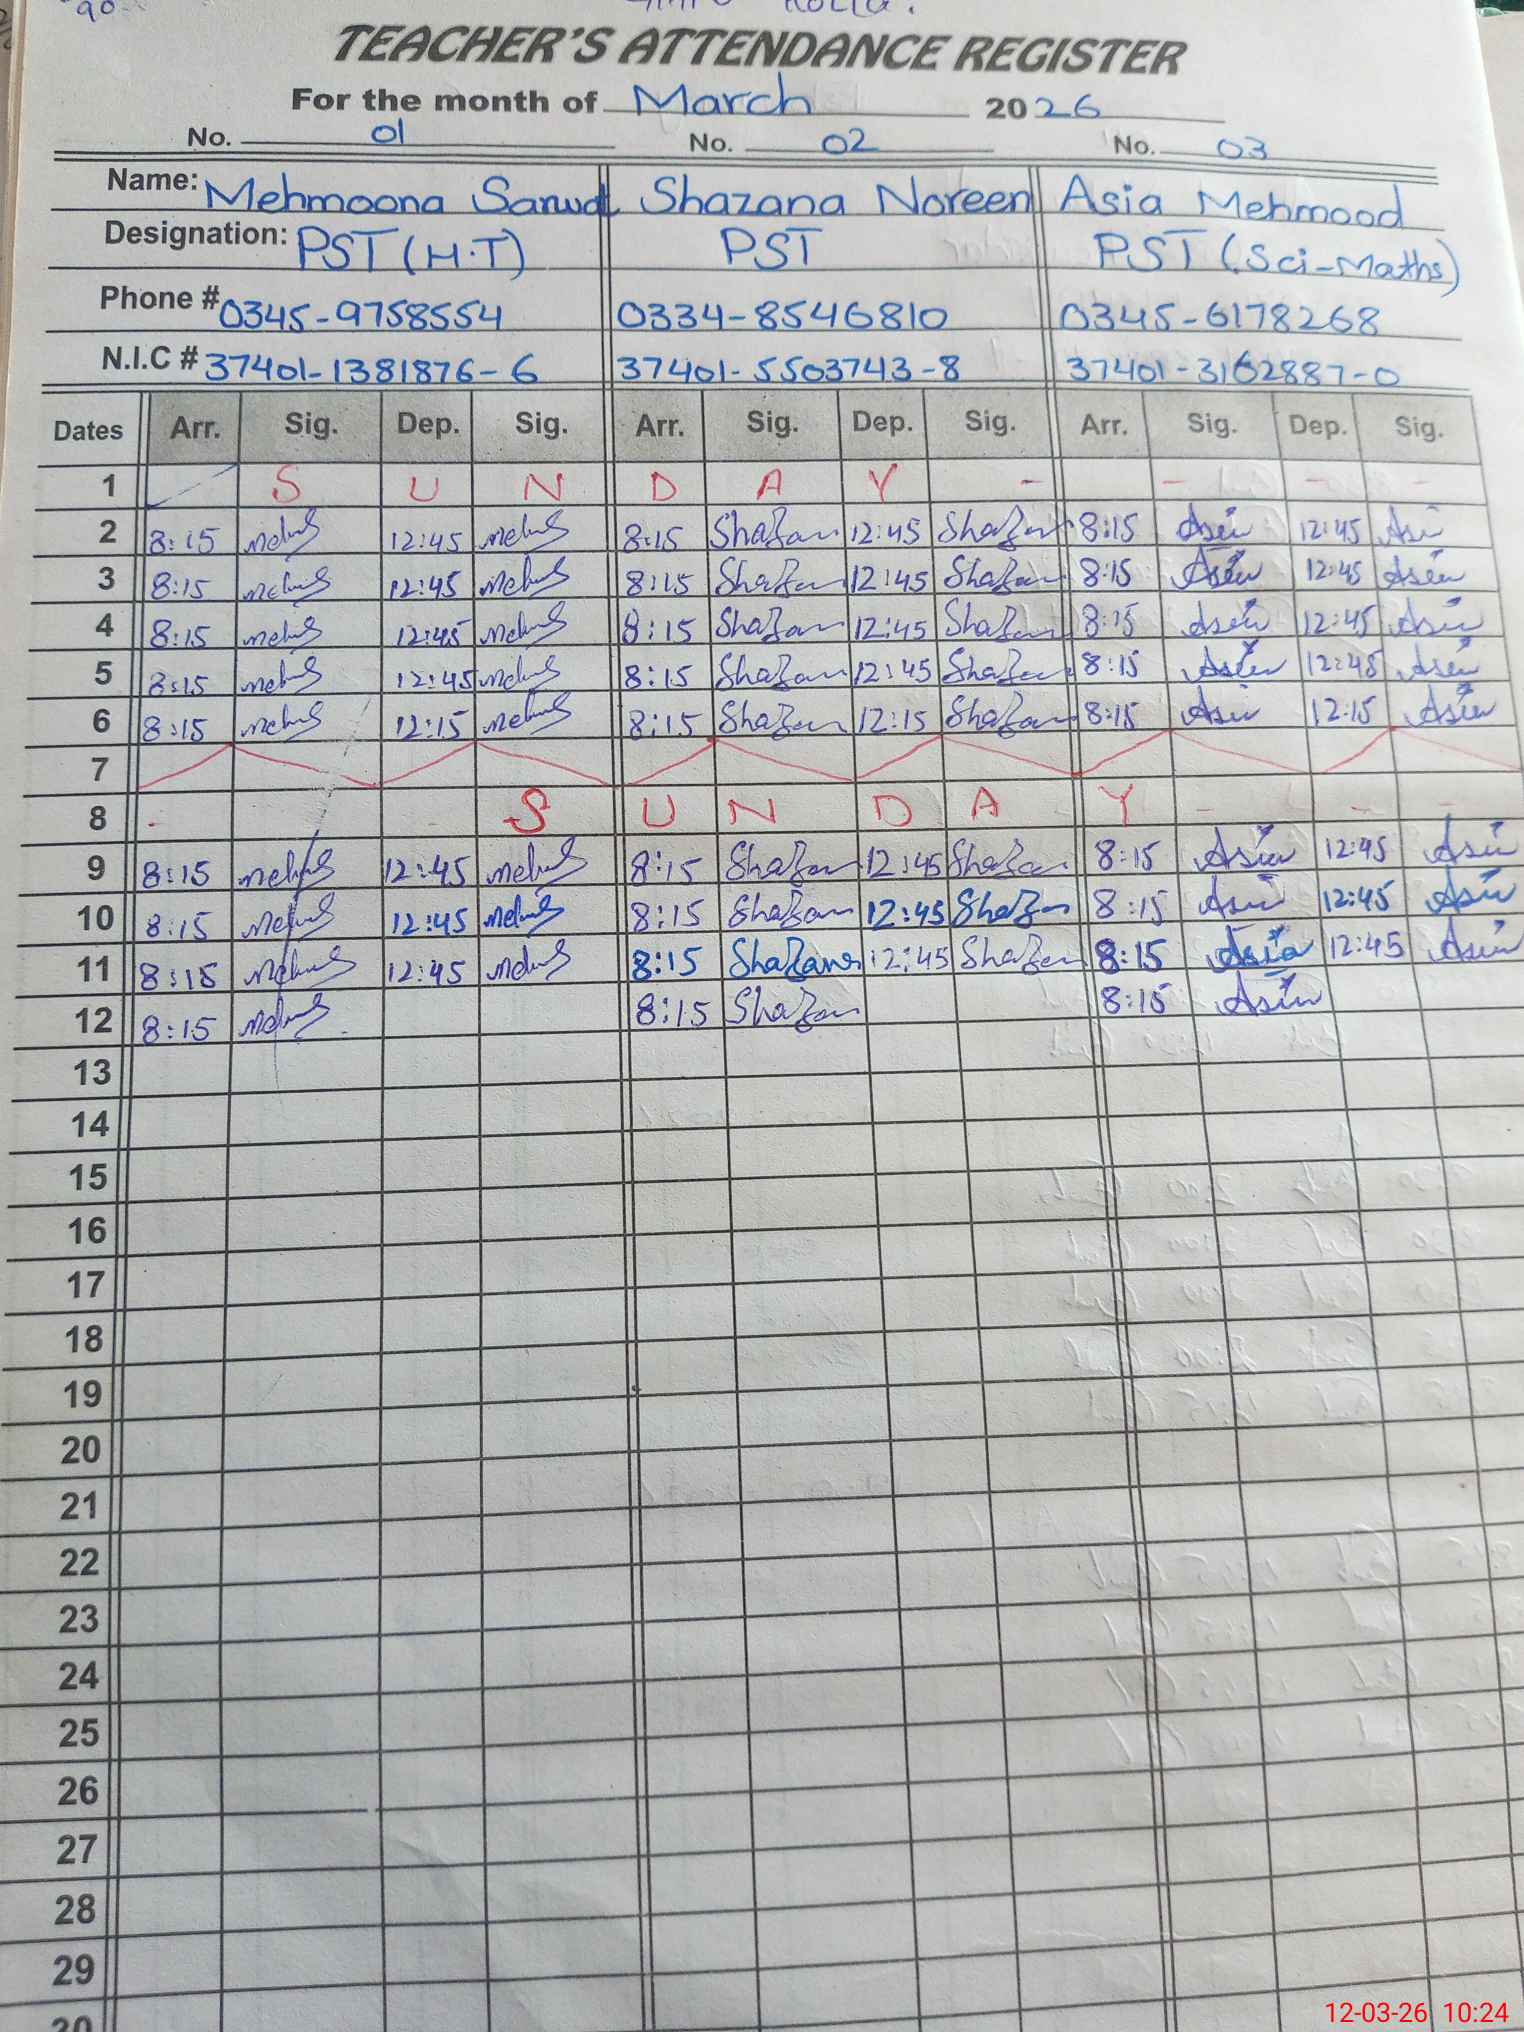 TEACHER'S ATTENDANCE REGISTER
For the month of March 2026
No. 01 No. 02 No. 03
Name: Mehmoona Shazana Noreen Asia Mehmood
Designation: PST (H.T) PST PST (Sci-Maths)
Phone # 0345-9758554 0334-8546810 0345-6178268
N.I.C # 37401-1381876-6 37401-5503743-8 37401-3162887-0
Dates Arr. Sig. Dep. Sig. Arr. Sig. Dep. Sig. Arr. Sig. Dep. Sig.
1 S U N D A Y - - - -
2 8:15 12:45 8:15 Shazan 12:45 Shazan 8:15 Asia 12:45 Asia
3 8:15 12:45 8:15 Shazan 12:45 Shazan 8:15 Asia 12:45 Asia
4 8:15 12:45 8:15 Shazan 12:45 Shazan 8:15 Asia 12:45 Asia
5 8:15 12:45 8:15 Shazan 12:45 Shazan 8:15 Asia 12:45 Asia
6 8:15 12:15 8:15 Shazan 12:15 Shazan 8:15 Asia 12:15 Asia
7
8 - S U N D A Y - - -
9 8:15 12:45 8:15 Shazan 12:45 Shazan 8:15 Asia 12:45 Asia
10 8:15 12:45 8:15 Shazan 12:45 Shazan 8:15 Asia 12:45 Asia
11 8:15 12:45 8:15 Shazan 12:45 Shazan 8:15 Asia 12:45 Asia
12 8:15 8:15 Shazan 8:15 Asia
13
14
15
16
17
18
19
20
21
22
23
24
25
26
27
28
29
30
12-03-26 10:24